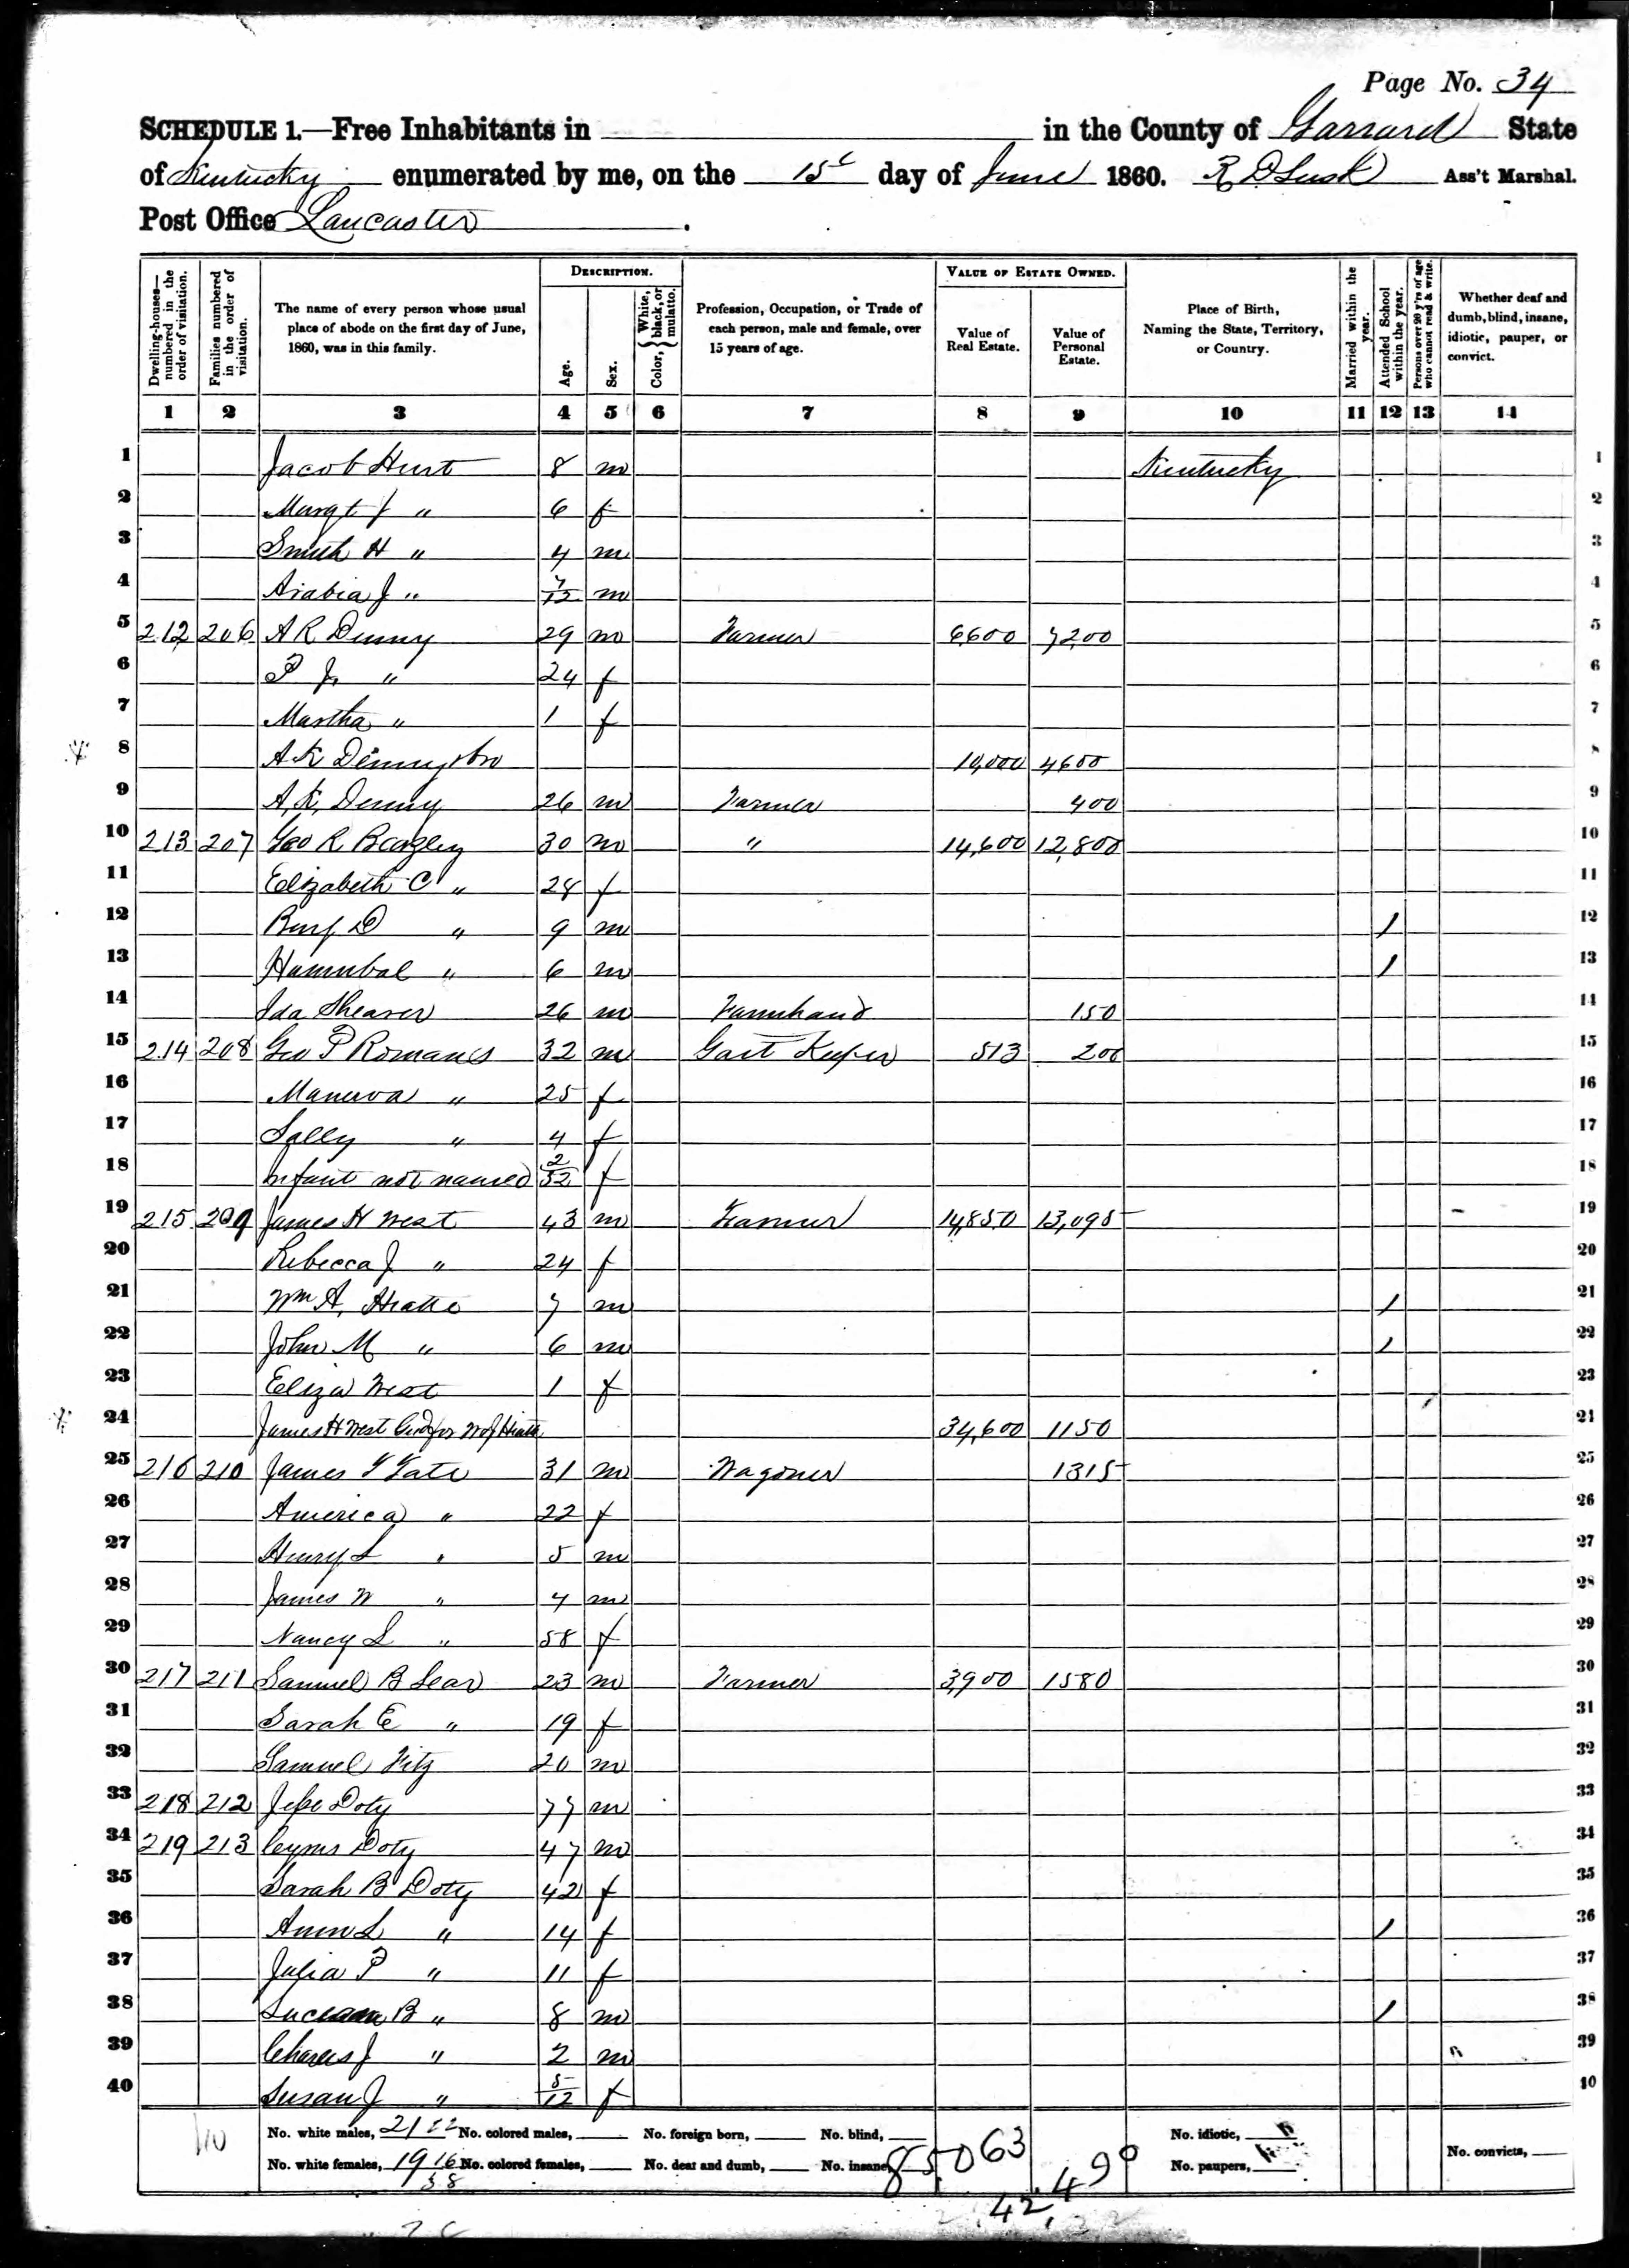 Page No. 34
SCHEDULE 1.—Free Inhabitants in in the County of Garrard State
of Kentucky enumerated by me, on the 15 day of June 1860. R D Lusk Ass't Marshal.
Post Office Lancaster .
Dwelling-houses—numbered in the order of visitation. Families numbered in the order of visitation. The name of every person whose usual place of abode on the first day of June, 1860, was in this family. DESCRIPTION. Age. Sex. Color, { White, black, or mulatto. Profession, Occupation, or Trade of each person, male and female, over 15 years of age. VALUE OF ESTATE OWNED. Value of Real Estate. Value of Personal Estate. Place of Birth, Naming the State, Territory, or Country. Married within the year. Attended School within the year. Persons over 20 y'rs of age who cannot read & write. Whether deaf and dumb, blind, insane, idiotic, pauper, or convict.
1 2 3 4 5 6 7 8 9 10 11 12 13 14
1 Jacob Hurt 8 m Kentucky 1
2 Margt J " 6 f 2
3 Smith H " 4 m 3
4 Arabia J " 7/12 m 4
5 212 206 A R Denny 29 m Farmer 6600 7200 5
6 P J " 24 f 6
7 Martha " 1 f 7
8 A K Denny 10,000 4600 8
9 A, K, Denny 26 m Farmer 400 9
10 213 207 Geo R Beazley 30 m " 14,600 12,800 10
11 Elizabeth C " 28 f 11
12 Benj D " 9 m / 12
13 Hannibal " 6 m / 13
14 Ida Shearer 26 m Farmhand 150 14
15 214 208 Geo P Romans 32 m Gait Keeper 513 200 15
16 Manerva " 25 f 16
17 Sally " 4 f 17
18 infant not named 2/52 f 18
19 215 209 James H West 43 m Farmer 14,850 13,095 19
20 Rebecca J " 24 f 20
21 Wm A, Hiatte 7 m / 21
22 John M " 6 m / 22
23 Eliza West 1 f 23
24 James H West for 34,600 1150 24
25 216 210 James Tate 31 m Wagoner 1315 25
26 America " 22 f 26
27 Henry L " 5 m 27
28 James W " 4 m 28
29 Nancy L " 58 f 29
30 217 211 Samuel B Lear 23 m Farmer 3,900 1580 30
31 Sarah E " 19 f 31
32 Samuel Fitz 20 m 32
33 218 212 Jesse Doty 77 m 33
34 219 213 Cyrus Doty 47 m 34
35 Sarah B Doty 42 f 35
36 Ann L " 14 f / 36
37 Julia P " 11 f 37
38 B " 8 m / 38
39 Charles J " 2 m 39
40 Susan J " 5/12 f 40
No. white males, 21 22 No. colored males, No. foreign born, No. blind, No. idiotic,
No. white females, 19 16 No. colored females, No. deaf and dumb, No. insane, No. paupers, No. convicts,
38 85,063 42,490